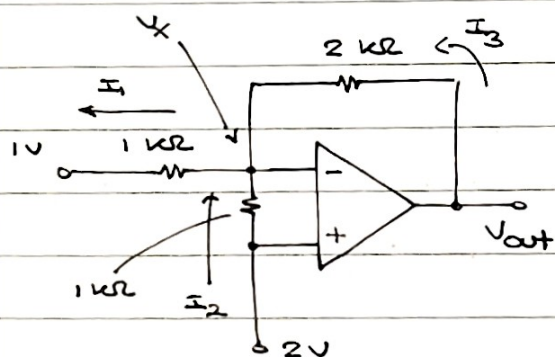 Vx
2 kΩ
I3
I1
1V
1 kΩ
-
+
Vout
1kΩ
I2
2V